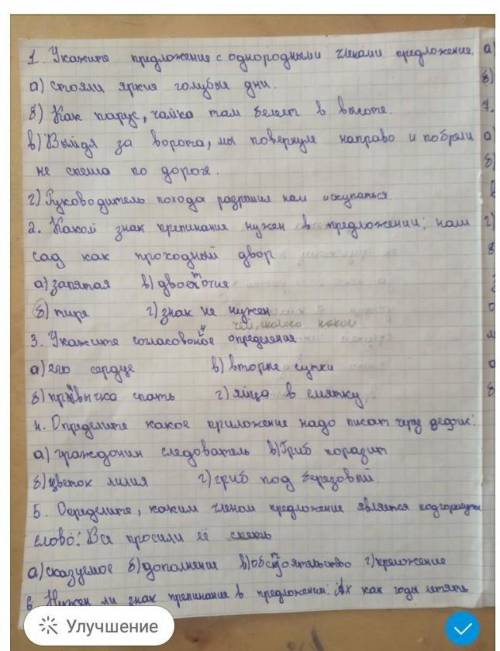 1. Укажите предложение с однородными членами предложение.
а) Стояли яркие голубые дни.
б) Как парус, чайка там белеет в высоте.
в) Выйдя за ворота, мы повернули направо и побрели
не спеша по дороге.
г) Руководитель похода разрешил нам искупаться.
2. Какой знак препинания нужен в предложении: наш
сад как проходный двор
а) запятая в) двоеточие
б) тире г) знак не нужен
3. Укажите согласованое определения
а) его сердце в) вторые сутки
б) привычка спать г) яйца в смятку
4. Определите какое приложение надо писат через дефис:
а) гражданин следователь в) гриб паразит
б) цветок лилия г) гриб под берёзовый
5. Определите, каким членом предложение является подчеркнуто
слово: Все просили её спеть
а) сказуемое б) дополнение в) обстоятельство г)
6. Нужен ли знак препинания в предложении: Ах как годы летять
Улучшение